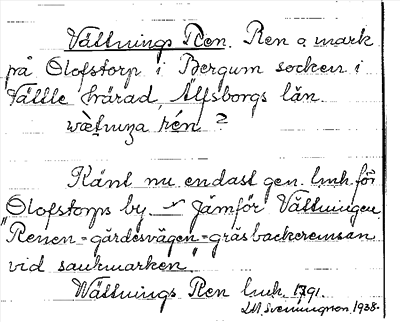 Vättnings Ren. Ren o. mark
på Olofstorp i Bergum socken i
Vättle härad, Älfsborgs län.
rén ?
Känt nu endast gen. lmh. för
Olofstorps by. Jämför Vättningen
"Renen = gärdesvägen = gräsbackeremsan
vid saukmarken"
Wättnings Ren lmh. 1791.
LM Svenningson 1938.